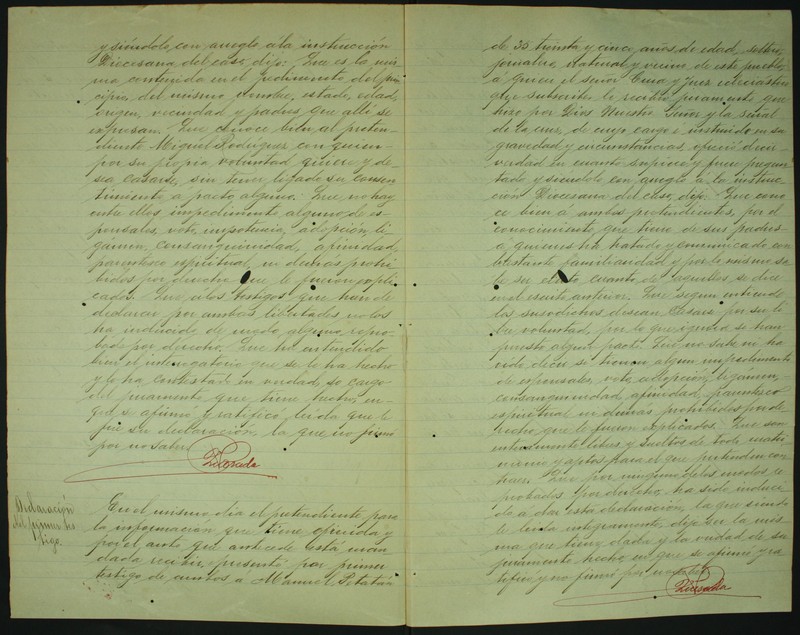 y siéndolo con arreglo a la instrucción
Diocesana del caso, dijo: Que es la mis
ma contenida en el pedimento del prin
cipio, del mismo nombre, estado, edad,
origen, vecindad y padres que alli se
expresan. Que conoce bien al preten-
diente Miguel Rodriguez con quien
por su propia voluntad quiere y de-
sea casarse, sin tener ligado su consen
timiento á pacto alguno. Que no hay
entre ellos impedimento alguno de es-
ponsales, voto, impotencia, adopción, li-
gamen, consanguinidad, afinidad,
parentesco espiritual, ni demás prohi-
bidos por derecho que le fueron expli-
cados. Que a los testigos que han de
declarar por ambas libertades no los
ha inducido de modo alguno repro-
bado por derecho. Que ha entendido
bien el interrogatorio que se le ha hecho
y lo ha contestado en verdad, so cargo
del juramento que tiene hecho, en
que se afirmó y ratificó leida que le
fué su declaración, la que no firmó
por no saber.
Quesada
Declaración
del primer tes
tigo.
En el mismo dia el pretendiente para
la información que tiene ofrecida y
por el auto que antecede está man
dada recibir, presentó por primer
testigo de ambos a Manuel
de 35 treinta y cinco años de edad, soltero,
jornalero, natural y vecino de este pueblo,
á quien el señor Cura y Juez eclesiástico
que subscribe le recibió juramento que
hizo por Dios Nuestro Señor y la señal
de la cruz, de cuyo cargo e instruido en su
gravedad y circunstancias, ofreció decir
verdad en cuanto supiere y fuere pregun
tado y siéndolo con arreglo á la instruc
ción Diocesana del caso, dijo: Que cono
ce bien a ambos pretendientes, por el
conocimiento que tiene de sus padres
a quienes ha tratado y comunicado con
bastante familiaridad y por lo mismo sa
be ser cierto cuanto de aquellos se dice
en el escrito anterior. Que segun entiende
los susodichos desean casarse por su li
bre voluntad, por lo que ignora si han
puesto algun pacto. Que no sabe ni ha
oido decir si tienen algun impedimento
de esponsales, voto, adopción, ligámen,
consanguinidad, afinidad, parentesco
espiritual ni demas prohibidos por de
recho que le fueron explicados. Que son
enteramente libres y sueltos de todo matri
monio y aptos para el que pretenden con
traer. Que por ninguno de los modos re
probados por derecho ha sido induci
do a dar esta declaración, la que siendo
le leida integramente, dijo ser la mis
ma que tiene dada y la verdad de su
juramento hecho en que se afirmó y ra
tificó y no firmó por no saber.
Quesada